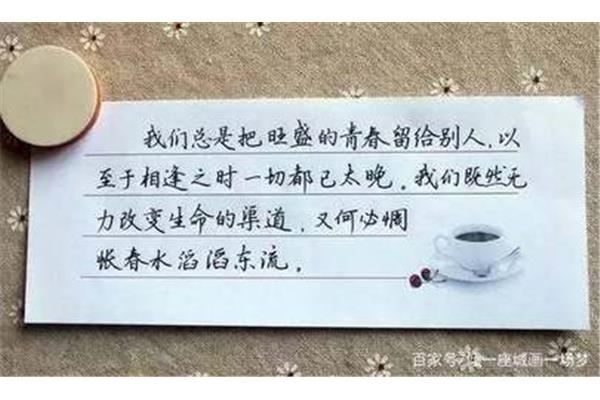 我们总是把旺盛的青春留给别人，以
至于相逢之时一切都已太晚。我们既然无
力改变生命的渠道，又何必惆
怅春水滔滔东流。
百家号/一座城画一场梦